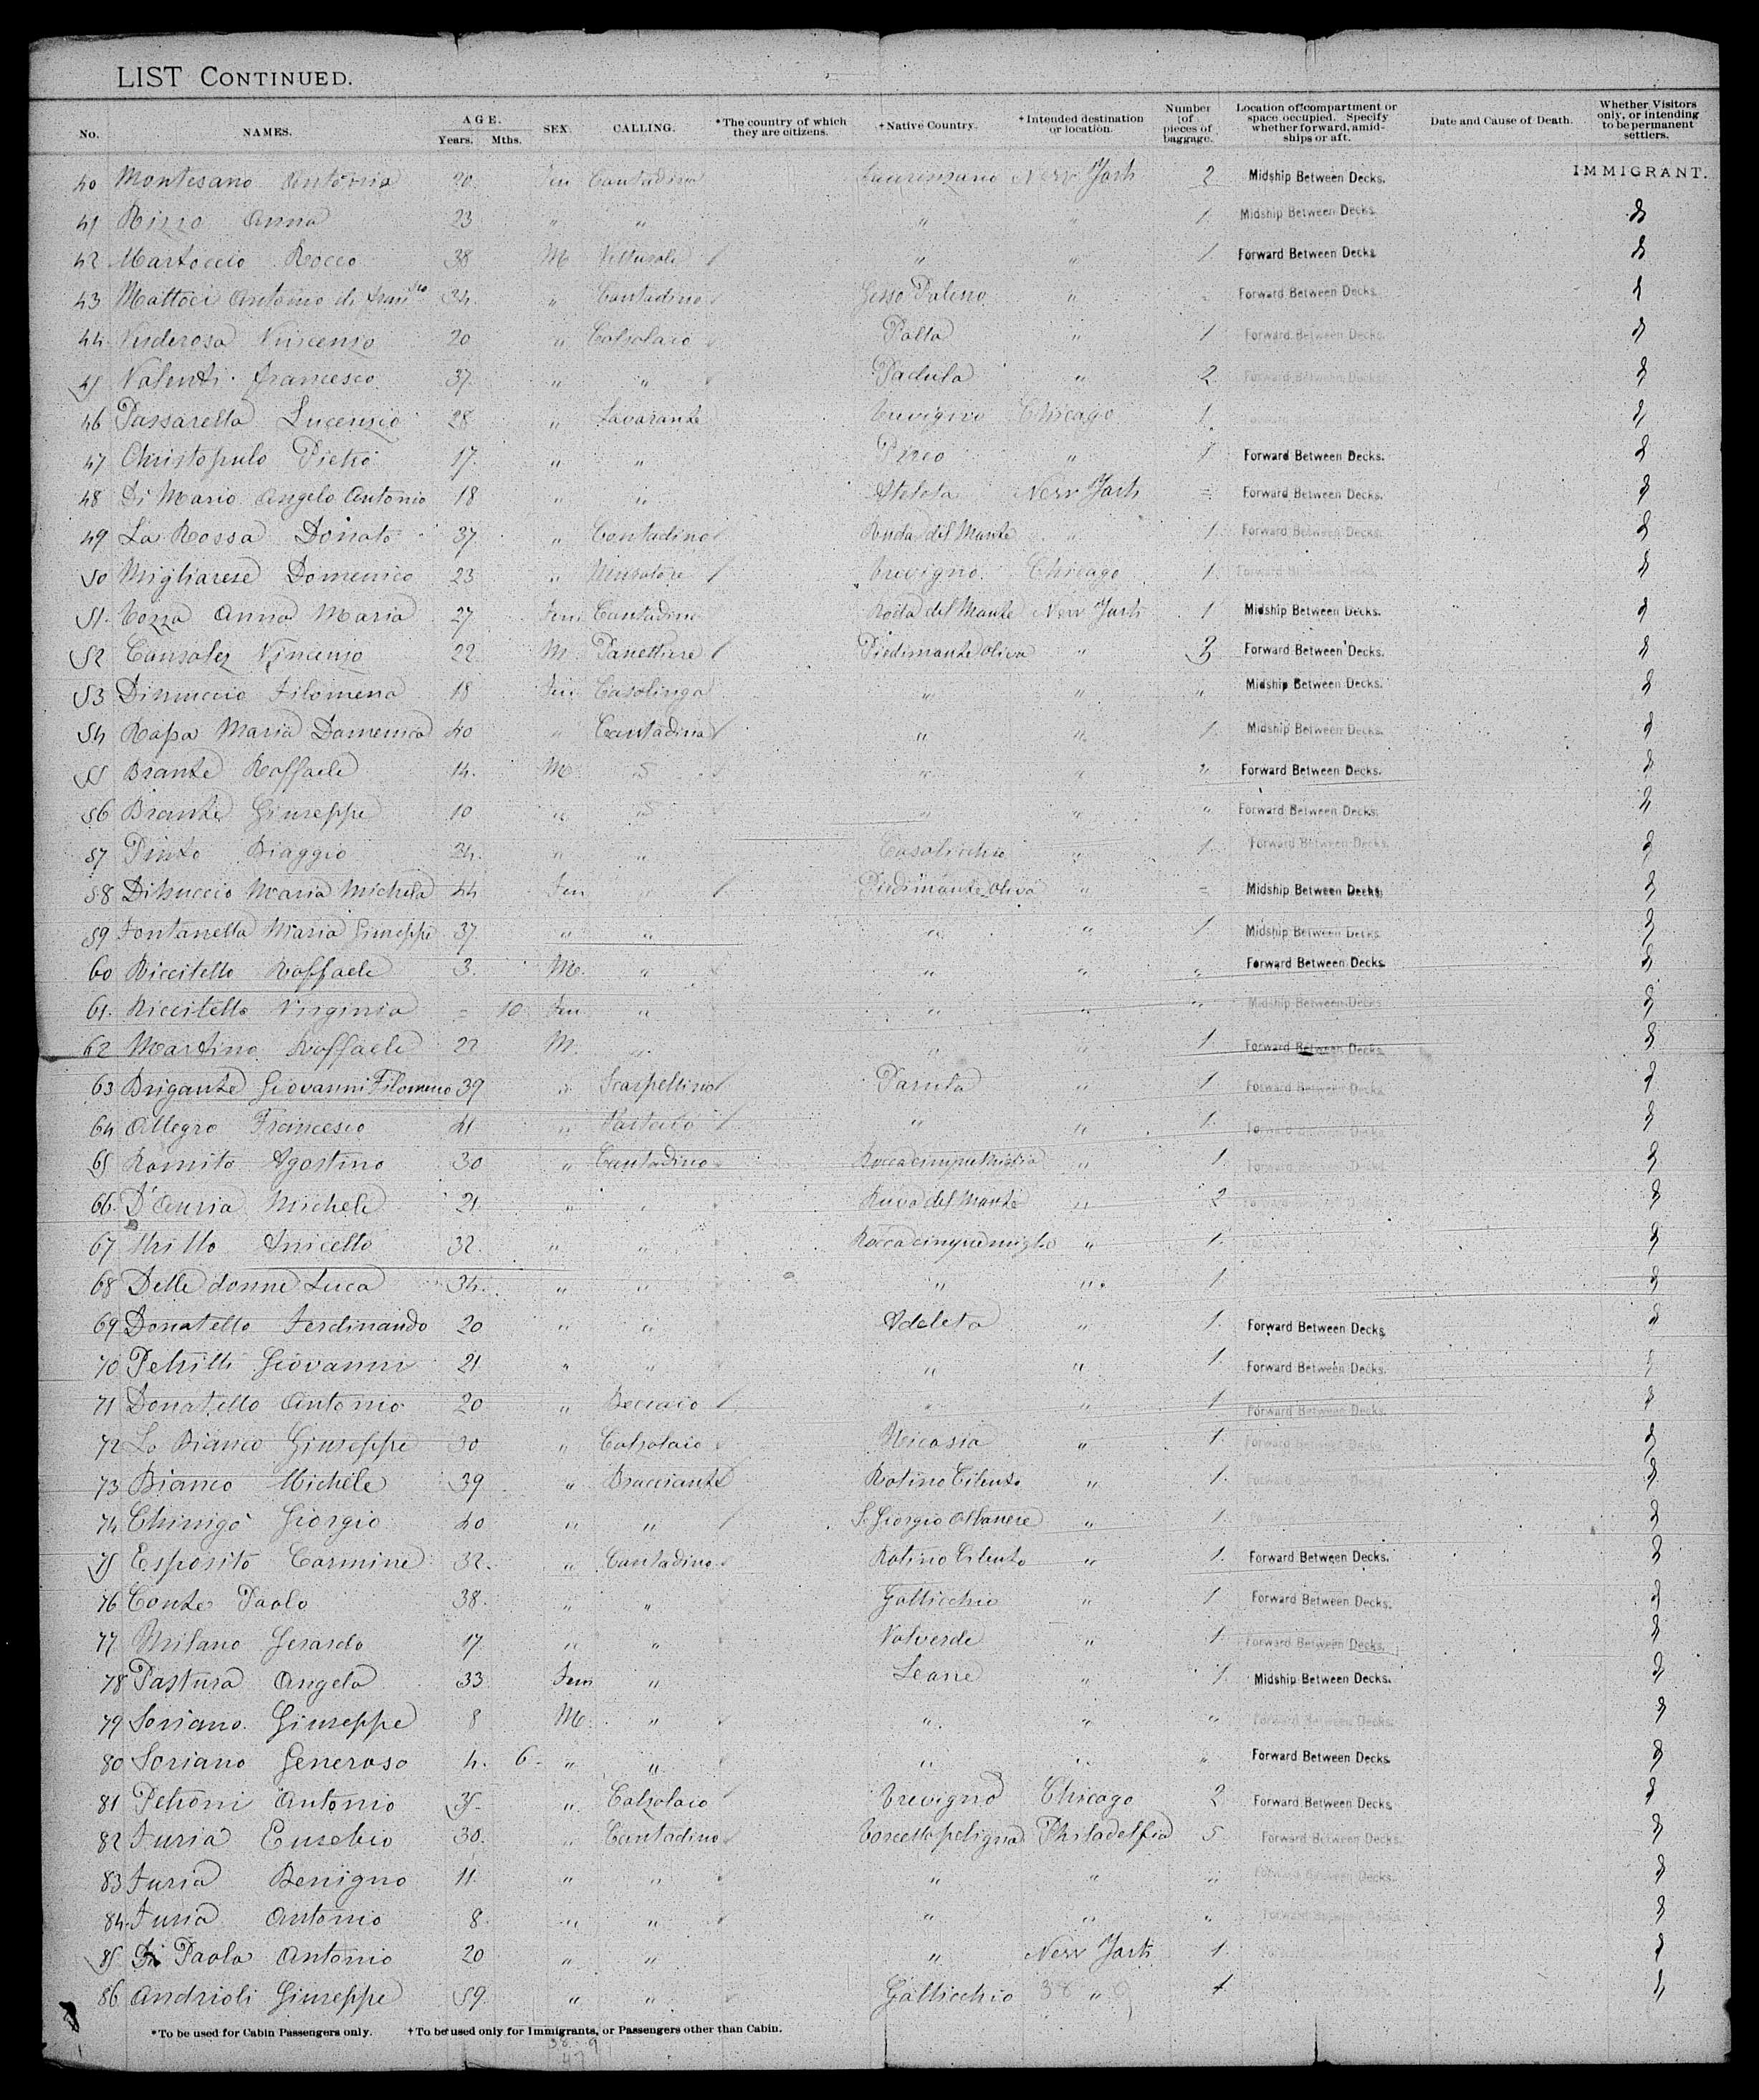 LIST CONTINUED.
No. NAMES. AGE. Years. Mths. SEX. CALLING. *The country of which they are citizens. †Native Country. †Intended destination or location. Number of pieces of baggage. Location of compartment or space occupied. Specify whether forward, amidships or aft. Date and Cause of Death. Whether Visitors only, or intending to be permanent settlers.
40 Montesano Antonia 20 Fem Contadina Laurenzano New York 2 Midship Between Decks. IMMIGRANT.
41 Rizzo Anna 23 " " " " 1 Midship Between Decks.
42 Martoccio Rocco 38 M " " 1 Forward Between Decks.
43 Mattoci Antonio di 34 " Contadino Gesso Paleno " Forward Between Decks.
44 Vincenzo 20 " Calzolaio Palta " 1 Forward Between Decks.
45 Valenti Francesco 37 " " Padula " 2 Forward Between Decks.
46 Passarella Lucenzio 28 " Lavorante Trevigno Chicago 1
47 Christopulo Pietro 17 " " Pireo " 1 Forward Between Decks.
48 Di Mario Angelo Antonio 18 " " Ateleta New York = Forward Between Decks.
49 La Rossa Donato 37 " Contadino del Monte " 1 Forward Between Decks.
50 Migliarese Domenico 23 " Trevigno Chicago 1 Forward Between Decks.
51 Cozza Anna Maria 27 Fem Contadina del Monte New York 1 Midship Between Decks.
52 Consolez Vincenzo 22 M Panettiere Piedimonte Oliva " 3 Forward Between Decks.
53 Dinuccio Filomena 18 Fem Casolinga " " " Midship Between Decks.
54 Rapa Maria Domenica 40 " Contadina " " 1 Midship Between Decks.
55 Brante Raffaele 14 M " " " " Forward Between Decks.
56 Brante Giuseppe 10 " " " " " Forward Between Decks.
57 Pinto Biaggio 34 " " Casalicchio " 1 Forward Between Decks.
58 Dinuccio Maria Michela 44 Fem " Piedimonte Oliva " = Midship Between Decks.
59 Fontanella Maria Giuseppe 37 " " " " 1 Midship Between Decks.
60 Riccitello Raffaele 3 M. " " " " Forward Between Decks.
61 Riccitello Virginia = 10 Fem " " " " Midship Between Decks
62 Martino Raffaele 22 M " " " 1 Forward Between Decks.
63 Brigante Giovanni Filomeno 39 " Scarpellino " 1 Forward Between Decks.
64 Allegro Francesco 41 " " " 1 Forward Between Decks.
65 Romito Agostino 30 " Contadino Roccacinquemiglia " 1 Forward Between Decks.
66 D'Auria Michele 21 " " Ruvo del Monte " 2 Forward Between Decks.
67 Anicetto 32 " " Roccacinquemiglia " 1
68 Delle donne Luca 34 " " " " 1
69 Donatello Ferdinando 20 " " Adeleta " 1 Forward Between Decks.
70 Petrilli Giovanni 21 " " " " 1 Forward Between Decks.
71 Donatello Antonio 20 " Beccaio " " 1 Forward Between Decks.
72 Lo Bianco Giuseppe 30 " Calzolaio Nicosia " 1 Forward Between Decks.
73 Bianco Michele 39 " Bracciante Rotino Cilento " 1 Forward Between Decks.
74 Chinigò Giorgio 40 " " S. Giorgio Albanese " 1
75 Esposito Carmine 32 " Contadino Rotino Cilento " 1 Forward Between Decks.
76 Conte Paolo 38 " " Gallicchio " 1 Forward Between Decks.
77 Milano Gerardo 17 " " Valverde " 1 Forward Between Decks.
78 Pastura Angela 33 Fem " " 1 Midship Between Decks.
79 Soriano Giuseppe 8 M. " " " " Forward Between Decks.
80 Soriano Generoso 4 6 " " " " " Forward Between Decks.
81 Petroni Antonio 35 " Calzolaio Trevigno Chicago 2 Forward Between Decks.
82 Furia Eusebio 30 " Contadino Torcella peligna Philadelfia 5 Forward Between Decks.
83 Furia Benigno 11 " " " " " Forward Between Decks.
84 Furia Antonio 8 " " " " " Forward Between Decks.
85 Di Paola Antonio 20 " " " New York 1 Forward Between Decks
86 Andrioli Giuseppe 59 " " Gallicchio "
*To be used for Cabin Passengers only. †To be used only for Immigrants, or Passengers other than Cabin.